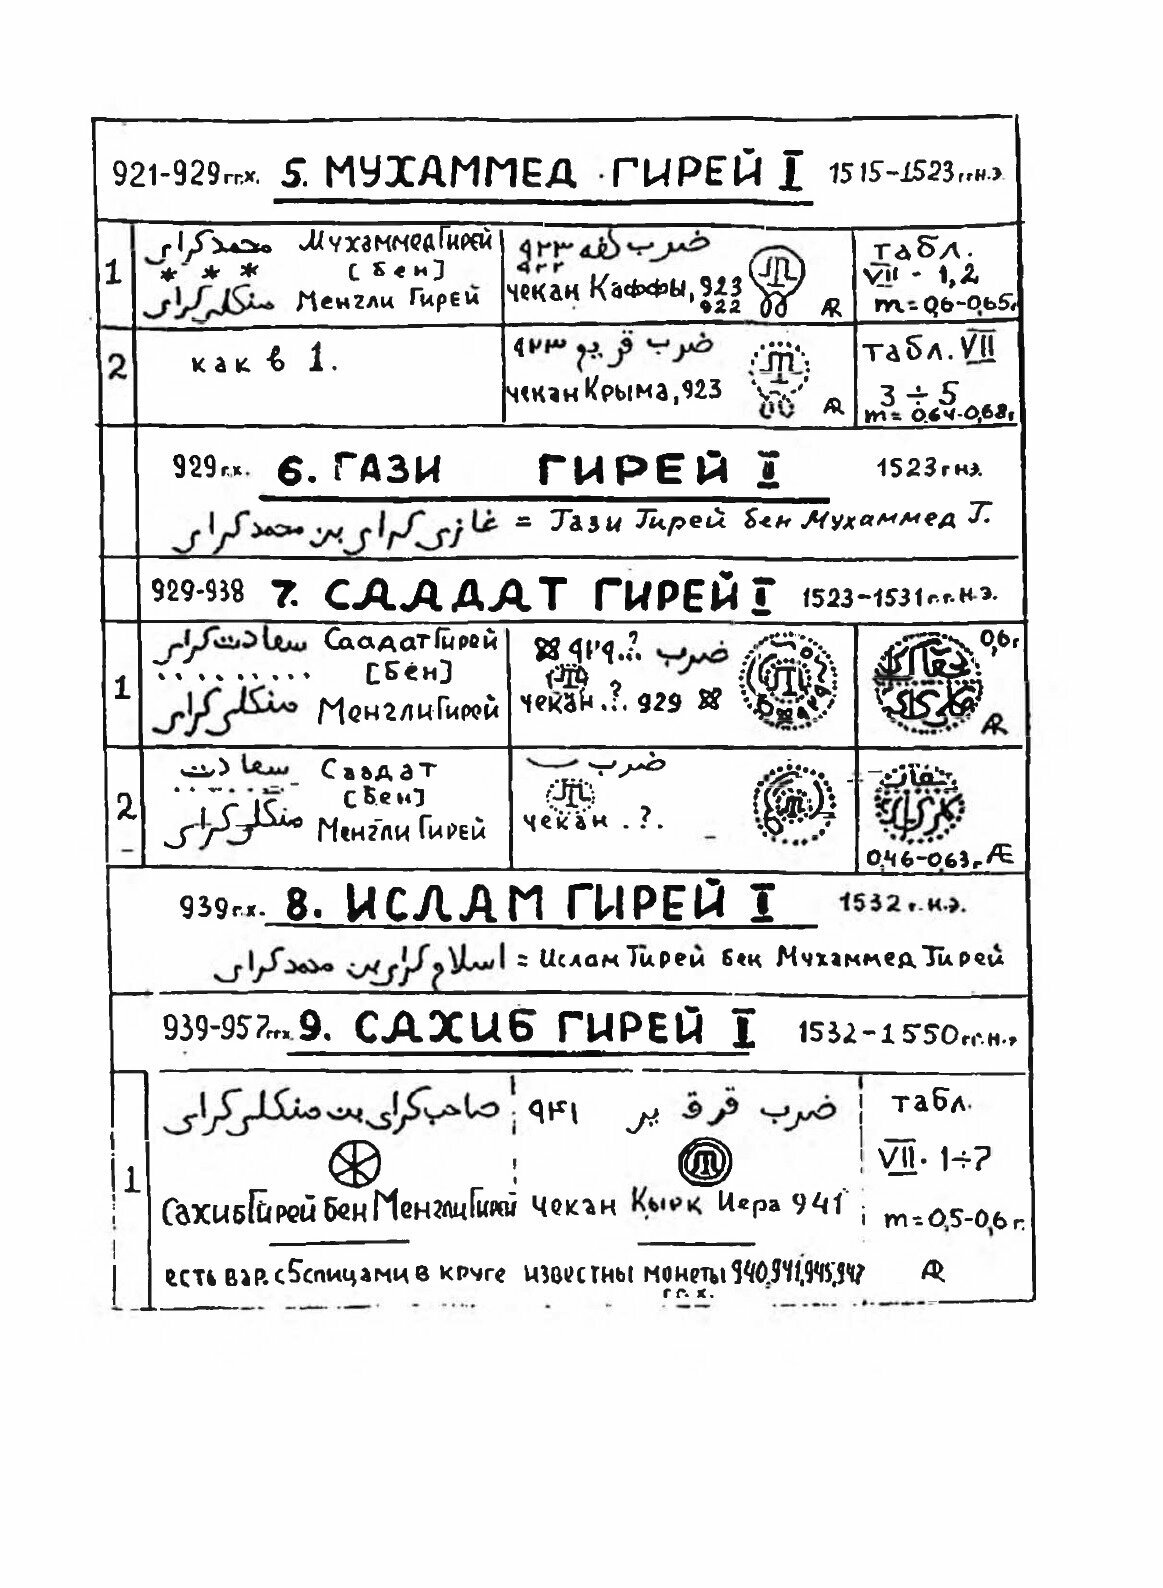 921-929гг.х. 5. МУХАММЕД ГИРЕЙ I 1515-1523гг н.э.
1 محمد كراى МухаммедГирей ضرب كفه ٩٢٣ табл.
* * * [бен] ٩٢٢ VII - 1,2
منكلى كراى Менгли Гирей чекан Каффы, 923 m=0,6-0,65г
922 AR
2 как в 1. ضرب قريم ٩٢٣ табл. VII
чекан Крыма, 923 3÷5
AR m= 0.64-0,68г
929г.х. 6. ГАЗИ ГИРЕЙ I 1523г нэ.
غازى كراى بن محمد كراى = Гази Гирей бен Мухаммед Г.
929-938 7. СААДАТ ГИРЕЙ I 1523-1531г.г. н.э.
1 سعادت كراى СаадатГирей ضرب ..?. ٩٢٩ 0,6г
[бен]
منكلى كراى МенглиГирей чекан .?. 929 AR
2 سعادت Саадат ضرب
[бен]
منكلى كراى Менгли Гирей чекан .?.
0,46-0,63г AE
939г.х. 8. ИСЛАМ ГИРЕЙ I 1532 г. н.э.
اسلام كراى بن محمد كراى = Ислам Гирей бен Мухаммед Гирей
939-957ггх. 9. САХИБ ГИРЕЙ I 1532-1550гг.н.э
1 صاحب كراى بن منكلى كراى ضرب قرق ير ٩٤١ табл.
VII. 1÷7
СахибГирей бен МенглиГирей чекан Кырк Иера 941 m=0,5-0,6г.
есть вар. с 5 спицами в круге известны монеты 940,941,945,947 AR
гг. х.